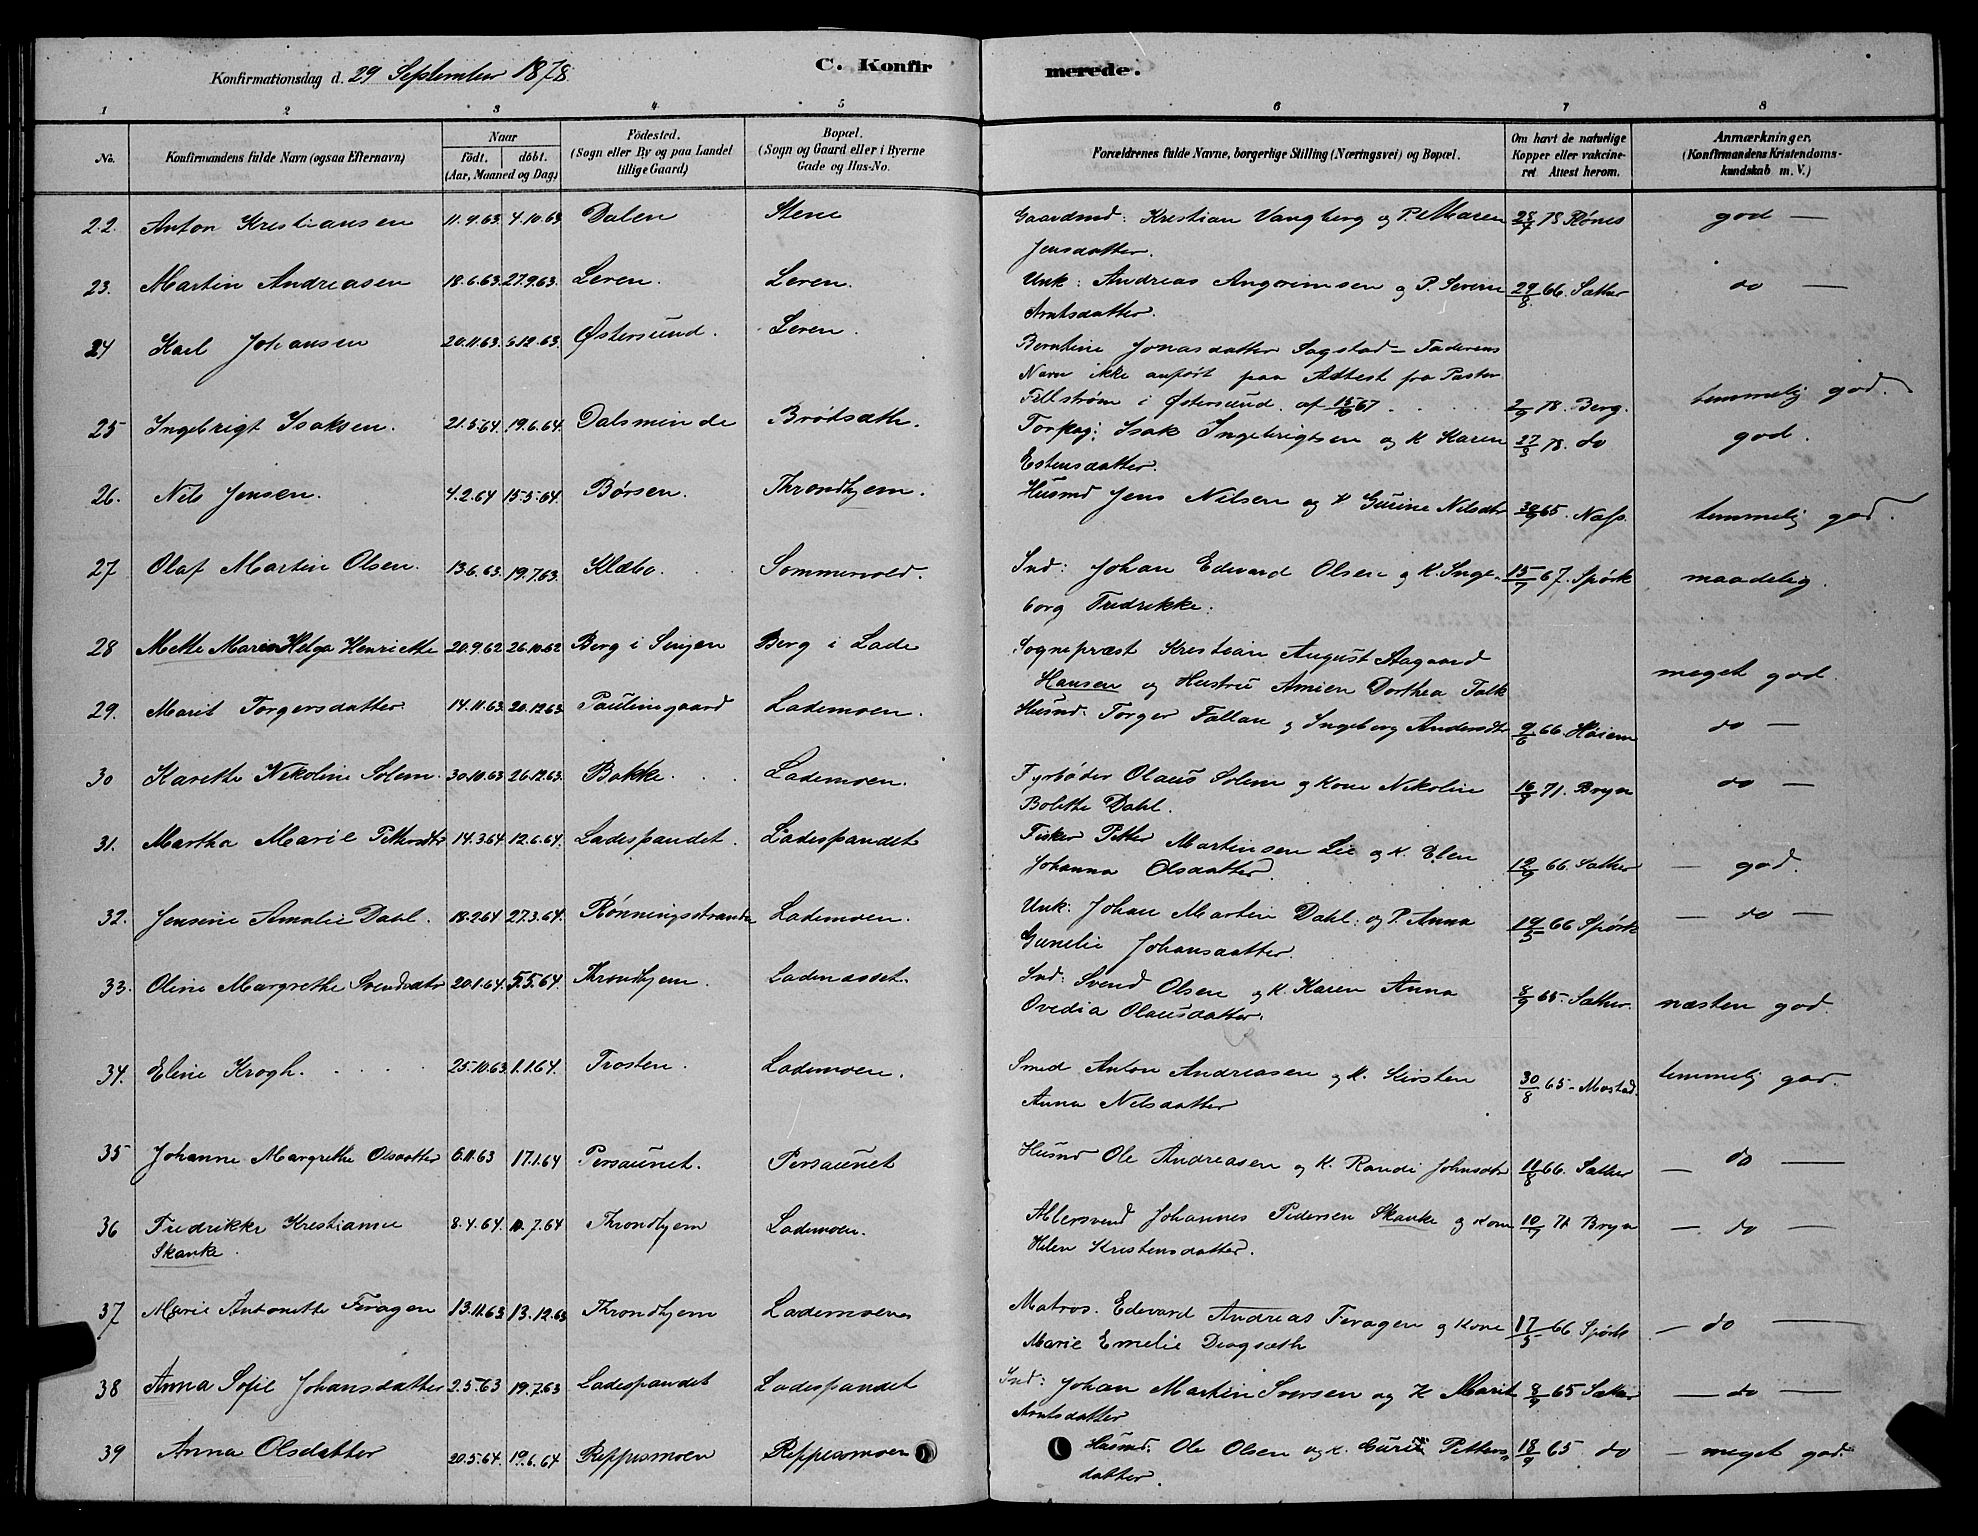 Konfirmationsdag d. 29 September 1878. C. Konfirmerede.
1 2 3 4 5 6 7 8
No. Konfirmandens fulde Navn (ogsaa Efternavn) Naar födt. döbt. (Aar, Maaned og Dag) Födested. (Sogn eller By og paa Landet tillige Gaard) Bopæl. (Sogn og Gaard eller i Byerne Gade og Hus-No. Forældrenes fulde Navne, borgerlige Stilling (Næringsvei) og Bopæl. Om havt de naturlige Kopper eller vakcineret Attest herom. Anmærkninger. (Konfirmandens Kristendomskundskab m. V.)
22. Anton Kristiansen 11.9.63. 4.10.63. Dalen Stene Gaardmd: Kristian Vangberg og P. Maren 78 Rønes god —
Jensdatter.
23. Martin Andreasen 18.6.63. 27.9.63. Leren. Leren. Unk: Andreas Angrimsen og P. Severine 29/8 66. Sæther do —
Arntsdatter.
24 Karl Johansen 20.11.63. 6.12.63. Østersund. Leren. Berntine Jonasdatter Sagstad – Faderens
Navn ikke anført paa Attest fra Pastor
Fellstrøm i Østersund af 67 2/9 78. Berg. temmelig god.
25 Ingebrigt Isaksen. 21.5.64. 19.6.64. Dalsminde Brødsæth. Forpag: Isak Ingebrigtsen og K Karen 27/3 78. do god.
Estensdatter.
26. Nils Jensen. 4.2.64 15.5.64. Børsen. Throndhjem. Husmd Jens Nilsen og K Gurine Nilsdtr 65. Næss. temmelig god.
27 Olaf Martin Olsen. 13.6.63. 19.7.63. Klæbo. Sommervold. Ind: Johan Edevard Olsen og K. Inge- 15/7 67. Spørk maadelig.
borg Fredrikke.
28 Mette Marie Helga Henriette 20.9.62. 26.10.62 Berg i Senjen Berg i Lade Sognepræst Kristian August Aagaard
Hansen og Hustru Amien Dorthea Falk meget god.
29. Marit Torgersdatter 14.11.63. 20.12.63. Paulinegaard Lademoen. Husmd: Torger Fallan og Ingeborg Andersdtr 9/6 66. Høiem do —
30 Karette Nikoline Solem. 30.10.63. 26.12.63. Bakke. Lademoen. Fyrbøder Olaus Solem og Kone Nikoline 16/8 71. Bryn do —
Bolette Dahl.
31. Martha Marie Pettersdtr 14.3.64. 12.6.64. Ladespandet. Ladespandet Fisker Petter Martinsen Lie og K. Elen
Johanna Olsdatter. 12/9 66. Sæther — god.
32. Jensine Amalie Dahl. 18.2.64 27.3.64. Rønningsstranda Lademoen. Unk: Johan Martin Dahl: og P. Anna 19/5 66 Spørk — do —
Gunelie Johansdatter.
33. Oline Margrethe Svendsdtr 20.1.64. 5.5.64. Throndhjem. Ladenæsset. Ind: Svend Olsen og K. Karen Anna 8/9 65. Sæther. næsten god.
Ovedia Olausdatter.
34. Eline Krogh. 25.10.63. 1.1.64. Frosten. Lademoen. Smed Anton Andreasen og K. Kirsten 30/8 65 – Mostad. temmelig god.
Anna Nilsdatter
35 Johanne Margrethe Olsdatter 6.11.63 17.1.64 Persaunet. Persaunet Husmd Ole Andreasen og K. Randi Johnsdtr 11/8 66. Sæther — do —
36 Fredrikke Kristianne 8.4.64. 10.7.64 Throndhjem Lademoen. Johannes Pedersen Skanke og Kone 10/7 Bryn — do —
Skanke. Helen Kristensdatter.
37 Marie Antonette Feragen 13.11.63 13.12.63 Throndhjem Lademoen Matros. Edevard Andreas Feragen og Kone 17/5 66 Spørk — do —
Marie Emelie Dragsæth
38 Anna Sofie Johansdatter 2.5.63 19.7.63 Ladespandet Ladespandet Ind: Johan Martin Iversen og K Marit 8/9 65 Sæther — do —
Arntsdatter
39 Anna Olsdatter 20.5.64. 19.6.64 Reppesmoen Reppesmoen Husmd. Ole Olsen og K. Guri Petters 18/9 65. do — meget god.
datter.